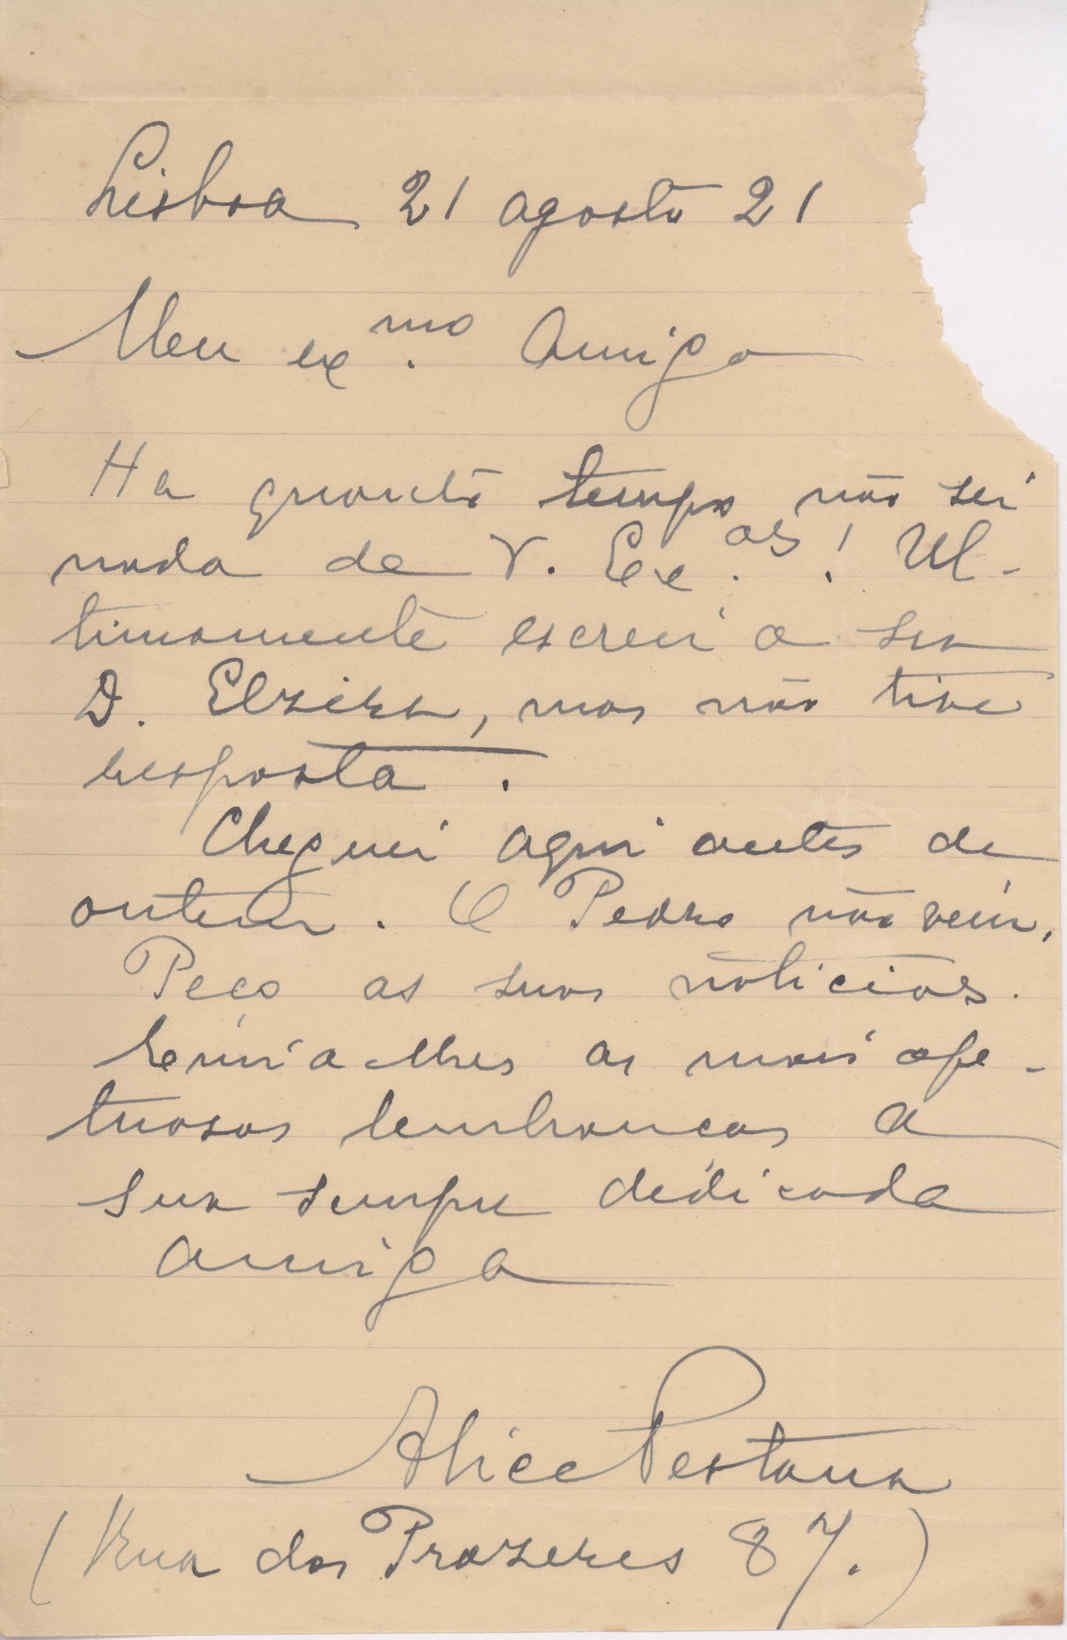 Lisboa 21 agosto 21
Meu ex.mo Amigo
Ha quanto tempo não sei
nada de V. Ex.as! Ul-
timamente escrevi a sua
D. Elzira, mas não tive
resposta.
Cheguei aqui antes de
ontem. O Pedro não vein.
Peço as suas noticias.
Envia-lhes as mais afe-
tuosas lembranças a
sua sempre dedicada
amiga
Alice Pestana
(Rua dos Prazeres 87.)